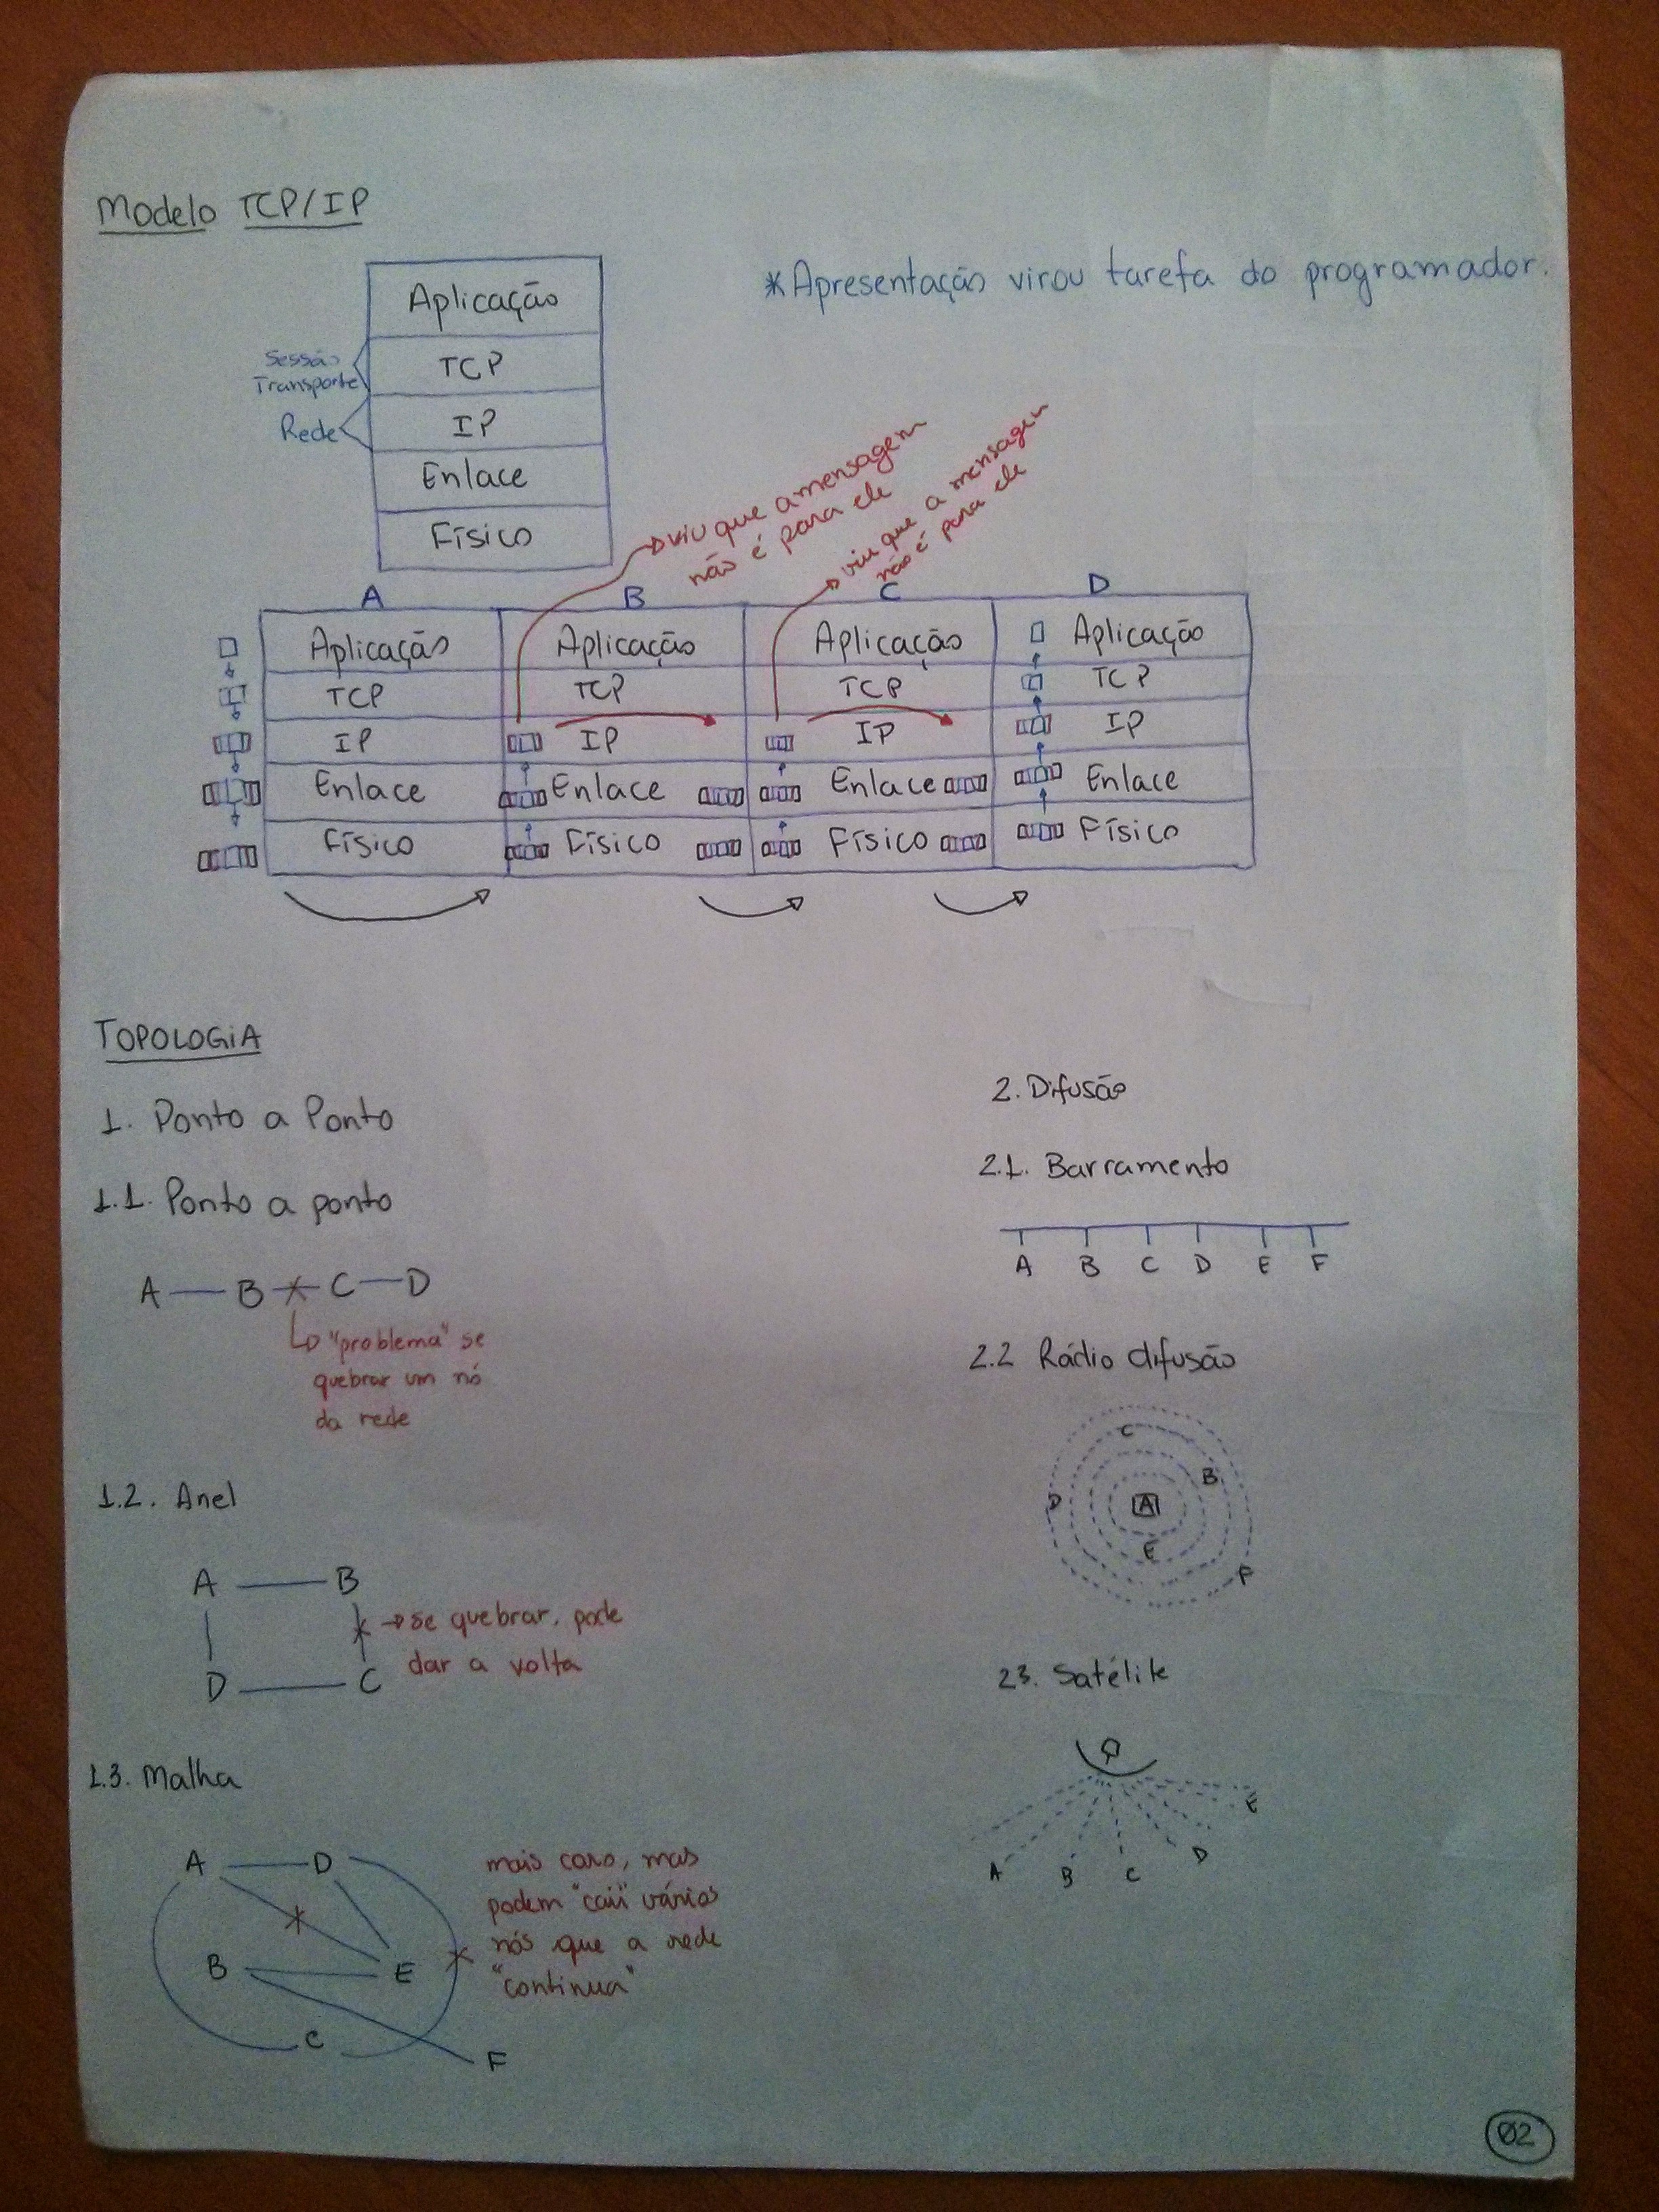 Modelo TCP/IP
*Apresentação virou tarefa do programador.
Aplicação
Sessão
Transporte
TCP
Rede
IP
Enlace
Físico
viu que a mensagem
não é para ele
viu que a mensagem
não é para ele
A B C D
Aplicação Aplicação Aplicação Aplicação
TCP TCP TCP TCP
IP IP IP IP
Enlace Enlace Enlace Enlace
Físico Físico Físico Físico
TOPOLOGIA
1. Ponto a Ponto
1.1. Ponto a ponto
A B C D
"problema" se
quebrar um nó
da rede
1.2. Anel
A B
se quebrar, pode
dar a volta
D C
1.3. Malha
A D
B E
C
F
mais caro, mas
podem "cair" vários
nós que a rede
"continua"
2. Difusão
2.1. Barramento
A B C D E F
2.2 Rádio difusão
C
B
D A
E
F
23. Satélite
E
A B C D
02